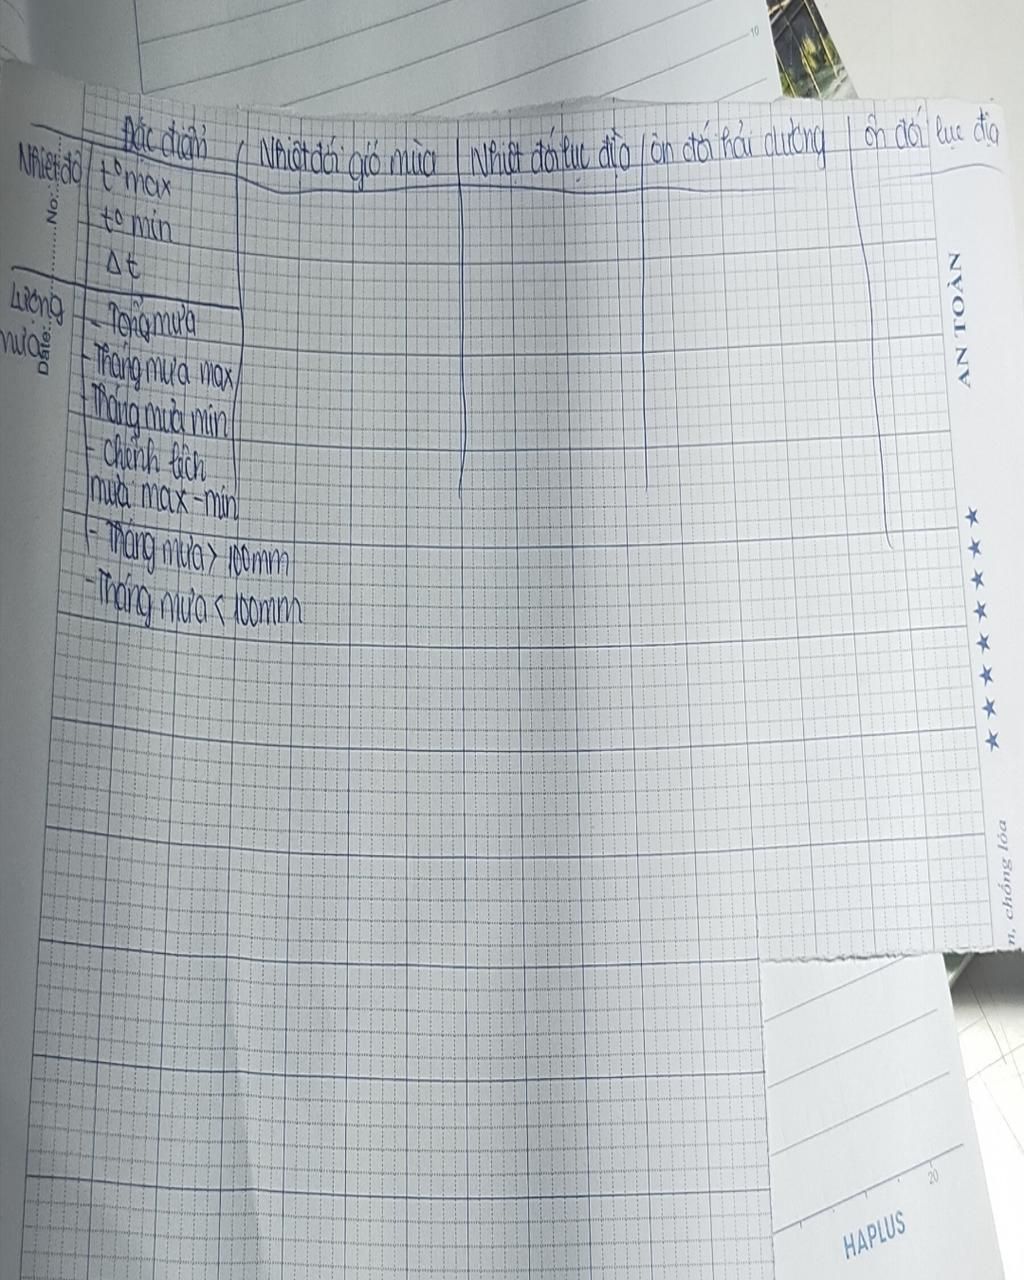 10
Đặc điểm
Nhiệt đới gió mùa
Nhiệt đới lục địa
ôn đới hải dương
ôn đới lục địa
Nhiệt độ
t° max
t° min
Δt
Lượng mưa
- Tổng mưa
- Tháng mưa max
- Tháng mưa min
- chênh lệch
mưa max-min
- Tháng mưa > 100mm
- Tháng mưa < 100mm
No:
Date:
AN TOÀN
★ ★ ★ ★ ★ ★ ★ ★
n, chống lóa
20
HAPLUS